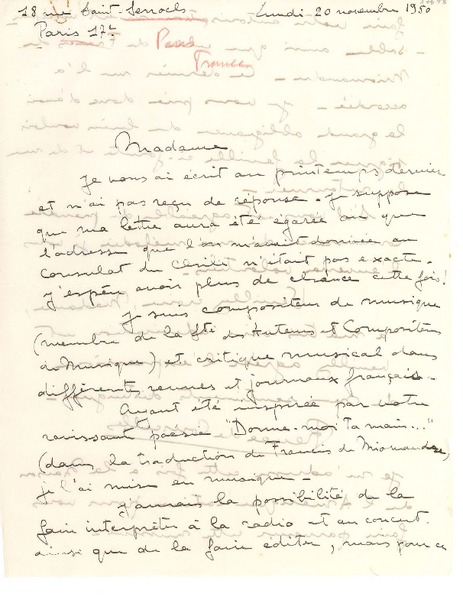 18 rue Saint Senoch
Lundi - 20 novembre 1950
Paris 17e
France
Madame
Je vous ai écrit au printemps dernier
et n'ai pas reçu de réponse. Je suppose
que ma lettre aura été égarée ou que
l'adresse que l'on m'avait donnée au
consulat du Chili n'était pas exacte.
J'espère avoir plus de chance cette fois!
Je suis compositeur de musique
(membre de la Sté des Auteurs et Compositeurs
de Musique) et critique musical dans
différentes revues et journaux français -
Ayant été inspirée par votre
ravissant poésie "Donne-moi ta main..."
(dans la traduction de Francis de Miomandre)
je l'ai mise en musique -
J'aurais la possibilité de la
faire interpréter à la radio et au concert
ainsi que de la faire éditer, mais pour ce